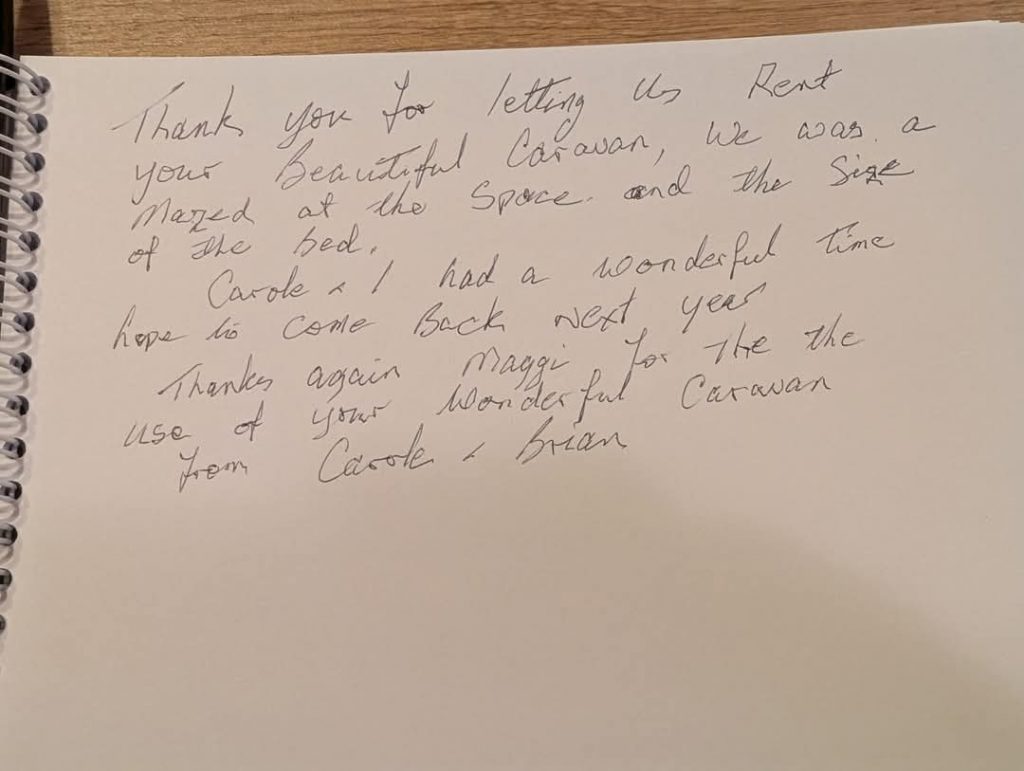 Thank you for letting Us Rent
your Beautiful Caravan, We was a
mazed at the Space and the Size
of the bed.
Carole & I had a wonderful time
hope to come Back Next year
Thanks again Maggi for The the
use of your wonderful Caravan
from Carole & Brian